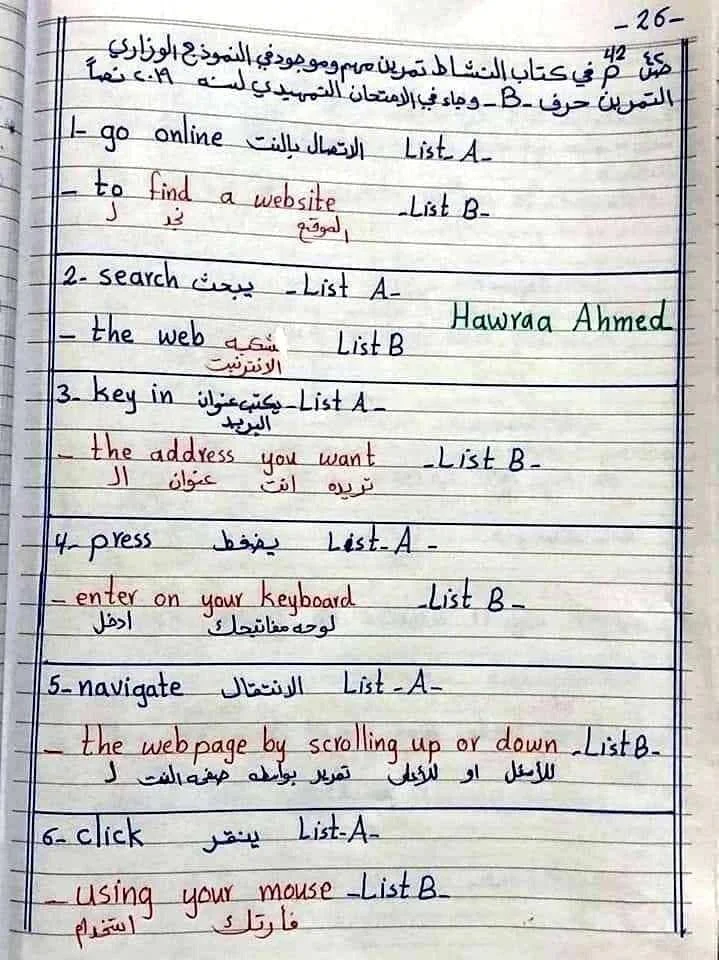 -26-
ص ٤٢ P 42 في كتاب النشاط تمرين مهم وموجود في النموذج الوزاري
التمرين حرف -B- وجاء في الامتحان التمهيدي لسنه ٢٠١٩ نصاً
1- go online الاتصال بالنت List-A-
- to find a website -List B-
لـ نجد الموقع
2- search يبحث -List A-
Hawraa Ahmed
- the web شبكه List B
الانترنيت
3- key in يكتب عنوان -List A-
البريد
- the address you want -List B-
الـ عنوان انت تريده
4- press يضغط List-A-
- enter on your keyboard -List B-
ادخل لوحه مفاتيحك
5- navigate الانتقال List-A-
- the web page by scrolling up or down -List B-
لـ صفحه النت بواسطه تمرير للأعلى او للأسفل
6- click ينقر List-A-
- using your mouse -List B-
استخدام فأرتك